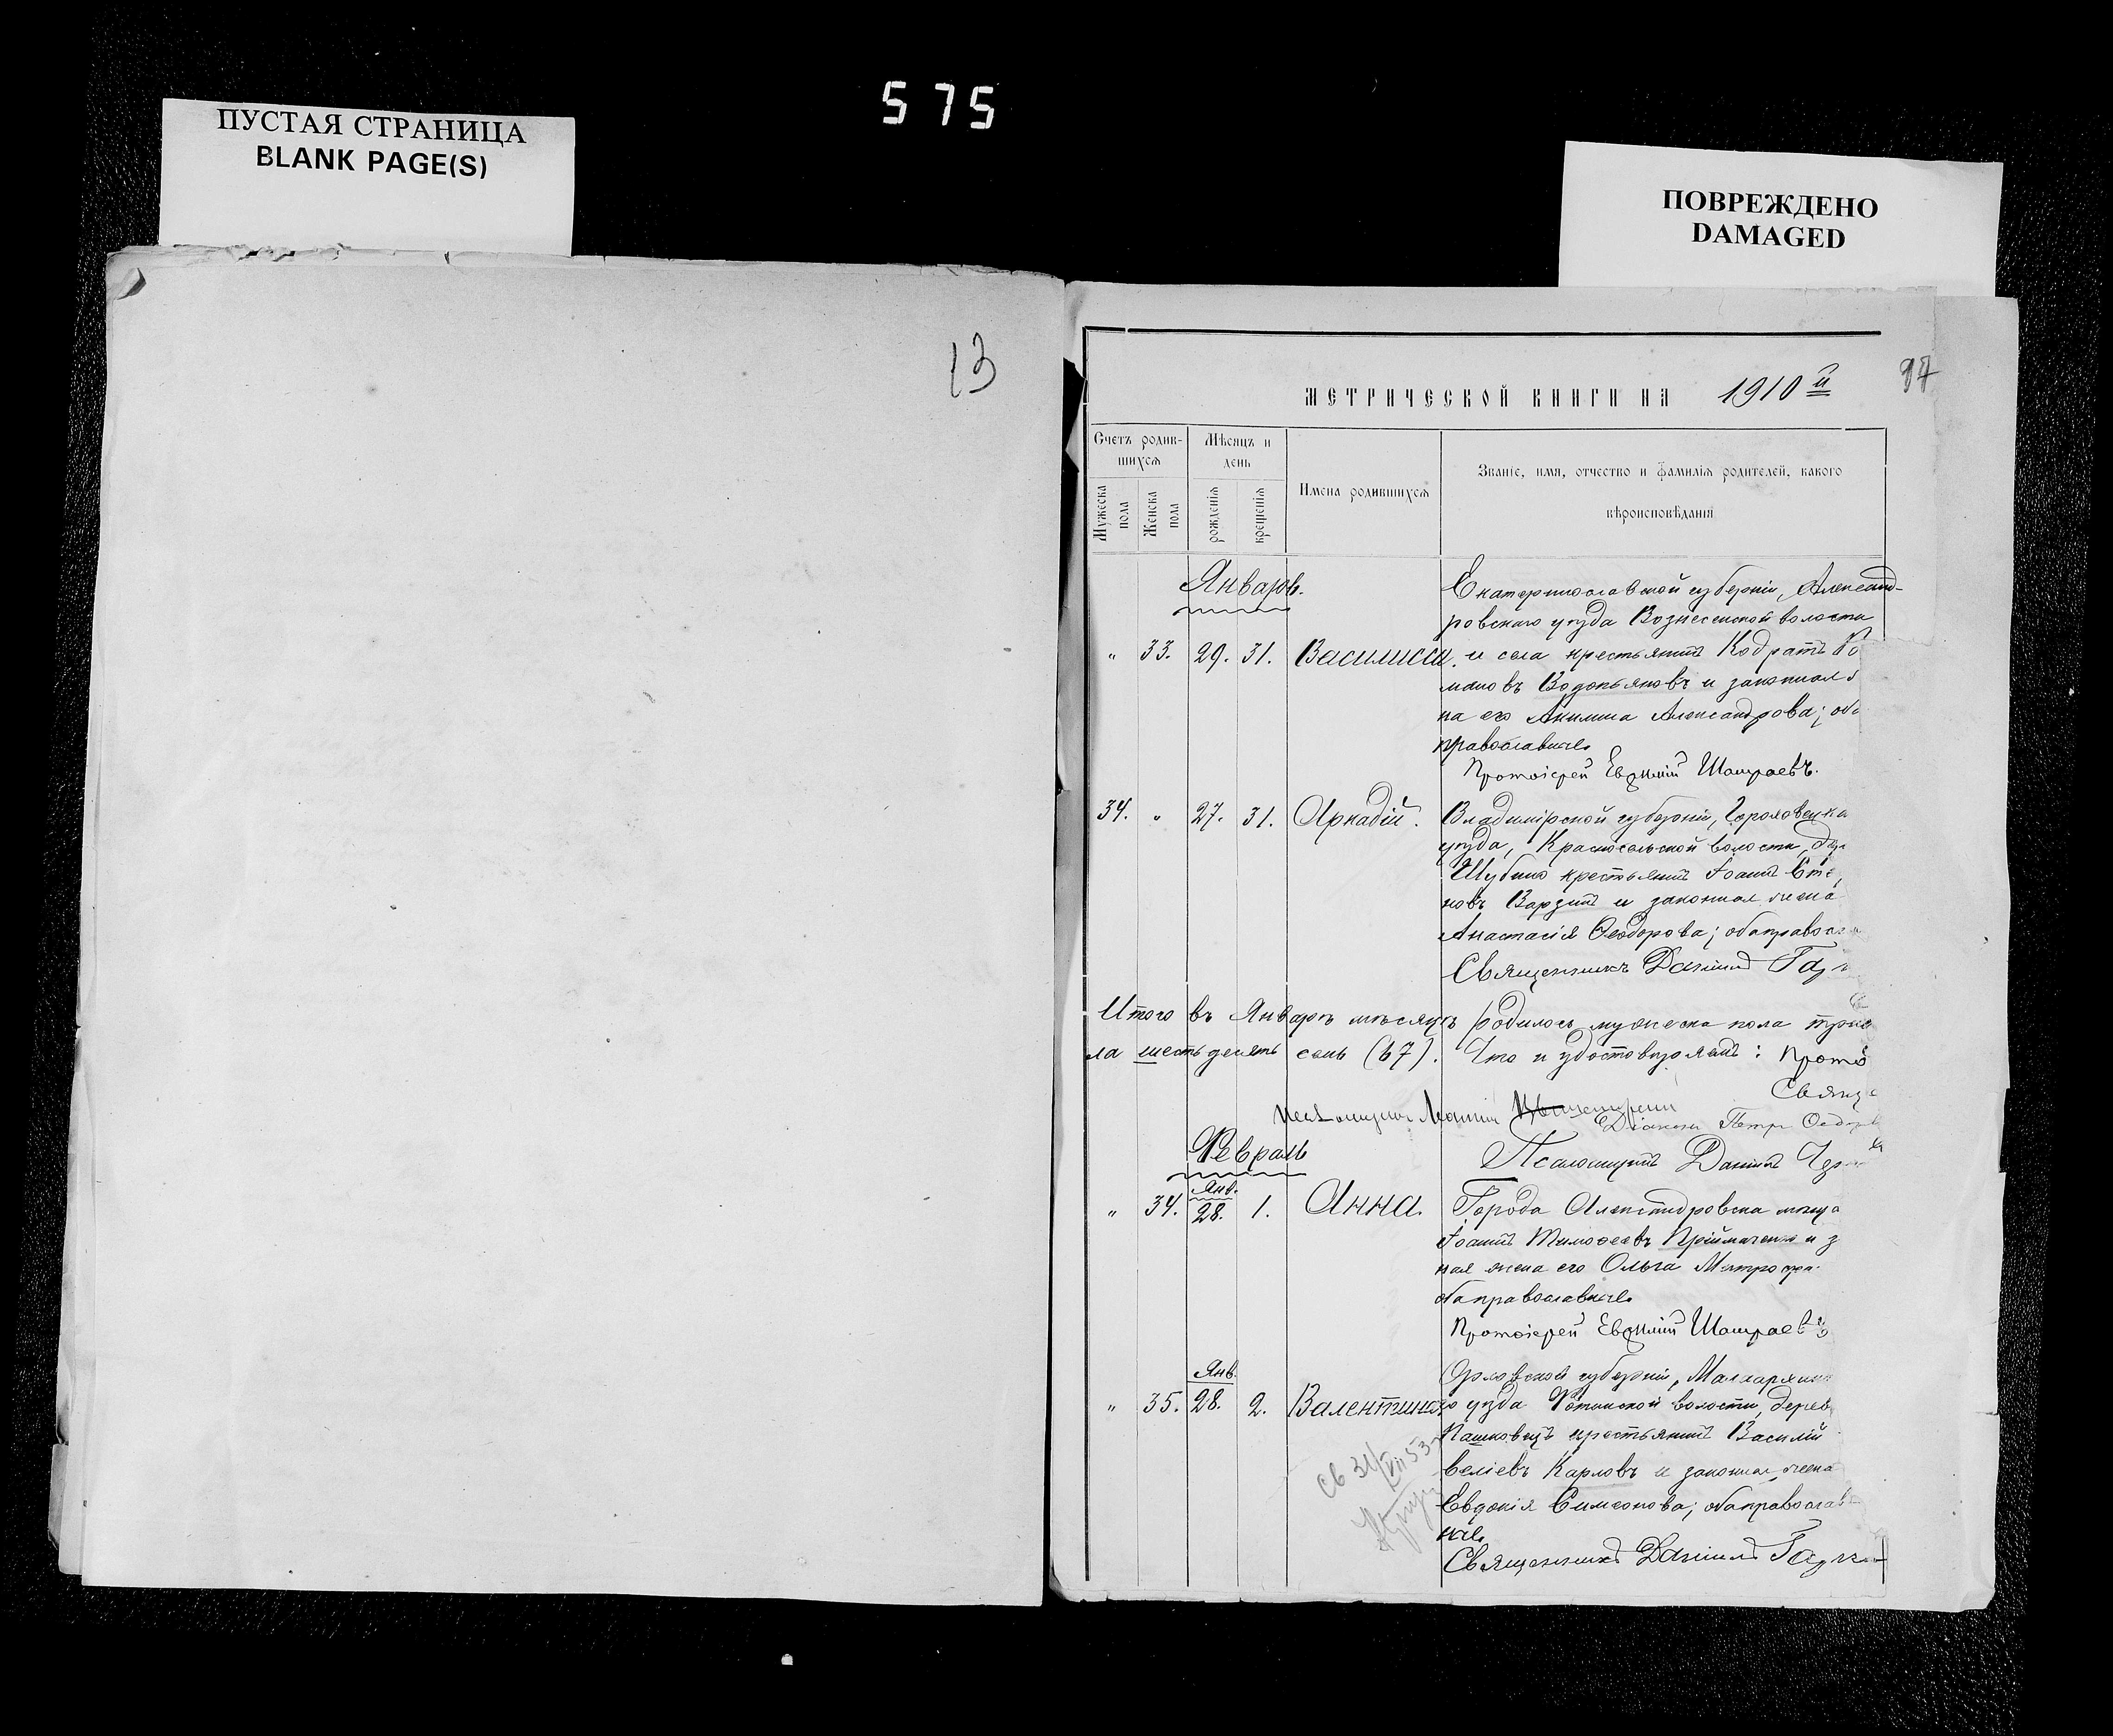 575
ПУСТАЯ СТРАНИЦА
BLANK PAGE(S)
ПОВРЕЖДЕНО
DAMAGED
13
МЕТРИЧЕСКОЙ КНИГИ НА 1910й
97
Счетъ родив-
шихся
Мѣсяцъ и
день
Мужеска
пола
Женска
пола
рожденія
крещенія
Имена родившихся
Званіе, имя, отчество и фамилія родителей, какого
вѣроисповѣданія
Январь.
Екатеринославской губерніи, Александ-
ровскаго уѣзда Вознесенской волости
" 33. 29. 31. Василисса. и села крестьянинъ Кодратъ Ро
мановъ Водопьяновъ и законная
на его Акилина Александрова; об
православные
Протоіерей Евфимій
34. " 27. 31. Аркадій. Владимірской губерніи, Гороховецка
уѣзда, Красносельской волости, дер
Шубино крестьянинъ Іоаннъ Сте
новъ Варзинъ и законная жена
Анастасія Ѳеодорова; оба правосл
Священникъ Даніилъ
Итого въ Январѣ мѣсяцѣ родилось мужеска пола трид
ла шестьдесятъ семь (67). Что и удостовѣряемъ: Прото
Свяще
Діаконъ Петръ
Февраль
Псаломщикъ Даніилъ
" 34. Янв. 28. 1. Анна. Города Александровска мѣща
Іоаннъ Тимоѳеевъ Прійменко и з
ная жена его Ольга Митрофан
оба православные
Протоіерей Евфимій
" 35. Янв. 28. 2. Валентина. Орловской губерніи, Малоархан
го уѣзда волости, дерев
крестьянинъ Василій
Карповъ и законная жена
Евдокія Симеонова; оба православ-
ные
Священникъ Даніилъ